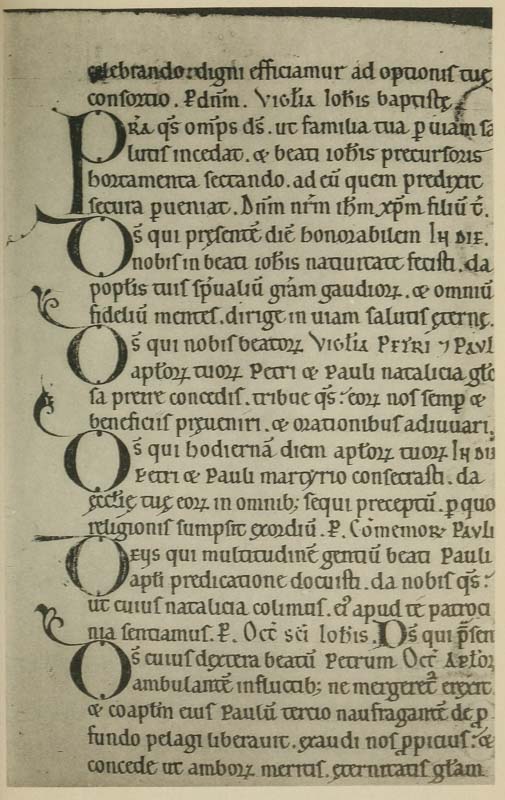 celebrando: digni efficiamur ad optionis tuę
consortio. P dnm̄. Vigl̄ia Ioħis baptistę
PRA qs̄ omp̄s ds̄. ut familia tua p uiam sa
lutis incedat. & beati ioħis precursoris
hortamenta sectando. ad eū quem predixit
secura pueniat. Dnm̄ nrm̄ ihm̄ xpm̄ filiū t̄.
Os̄ qui pręsentē diē honorabilem IN DIE.
nobis in beati ioħis natiuitate fecisti. da
popłis tuis spūaliū grām gaudioꝝ. & omniū
fideliū mentes. dirige in uiam salutis ęternę.
Os̄ qui nobis beatoꝝ Vigl̄ia PETRI ⁊ PAVL
apłoꝝ tuoꝝ Petri & Pauli natalicia glō
sa preire concedis. tribue qs̄: eoꝝ nos semp &
beneficiis pręueniri. & orationibus adiuuari.
Os̄ qui hodiernā diem apłoꝝ tuoꝝ IN DIE
Petri & Pauli martyrio consecrasti. da
ęccłię tuę eoꝝ in omnib; sequi preceptū. p quo
religionis sumpsit exordiū. P. Cōmemor PAVLI
Oeus qui multitudinē gentiū beati Pauli
apłi predicatione docuisti. da nobis qs̄:
ut cuius natalicia colimus. ei apud te patroci
nia sentiamus. P. Oct̄ sc̄i Ioħis. Ds̄ qui p̄sen
Os̄ cuius dextera beatū Petrum Oct̄ Apłoꝝ
ambulantē in fluctib; ne mergeret erexit
& coapłm eius Paulū tercio naufragantē de p
fundo pelagi liberauit. exaudi nos ppicius: &
concede ut amboꝝ meritis. ęternitatis głam